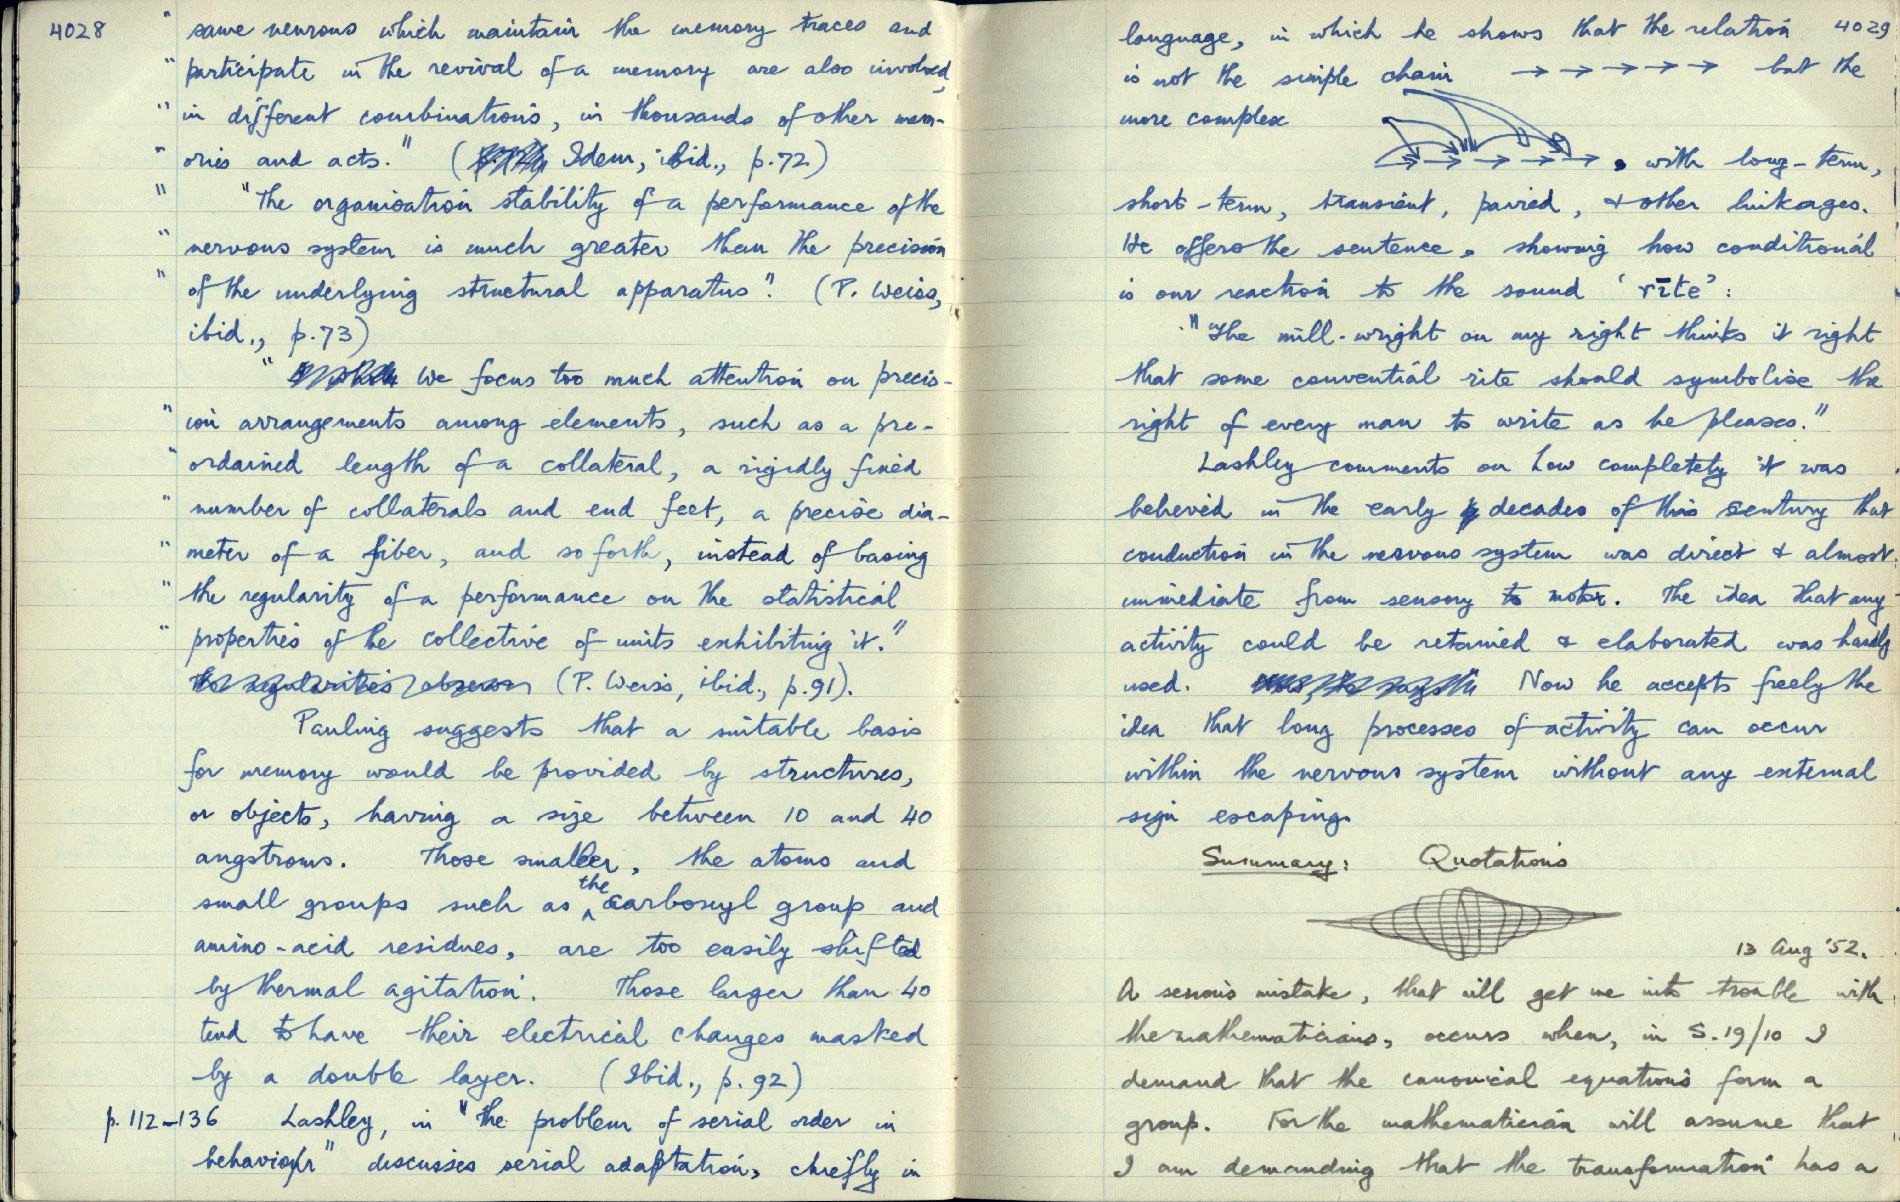 4028
" same neurons which maintain the memory traces and
" participate in the revival of a memory are also involved,
" in different combinations, in thousands of other mem-
" ories and acts." ( Idem, ibid., p.72)
" "The organisation stability of a performance of the
" nervous system is much greater than the precision
" of the underlying structural apparatus". (P. Weiss,
ibid., p.73)
" We focus too much attention on precis-
" ion arrangements among elements, such as a pre-
" ordained length of a collateral, a rigidly fixed
" number of collaterals and end feet, a precise dia-
" meter of a fiber, and so forth, instead of basing
" the regularity of a performance on the statistical
" properties of the collective of units exhibiting it."
the regularities observ (P. Weiss, ibid., p.91).
Pauling suggests that a suitable basis
for memory would be provided by structures,
or objects, having a size between 10 and 40
angstroms. Those smaller, the atoms and
small groups such as the carboxyl group and
amino-acid residues, are too easily shifted
by thermal agitation. Those larger than 40
tend to have their electrical changes masked
by a double layer. (Ibid., p.92)
p.112-136 Lashley, in "the problem of serial order in
behavior" discusses serial adaptation, chiefly in
4029
language, in which he shows that the relation
is not the simple chain → → → → → but the
more complex
, with long-term,
short-term, transient, paired, & other linkages.
He offers the sentence, showing how conditional
is our reaction to the sound 'rīte':
"The mill-wright on my right thinks it right
that some convential rite should symbolise the
right of every man to write as he pleases."
Lashley comments on how completely it was
believed in the early decades of this century that
conduction in the nervous system was direct & almost
immediate from sensory to motor. The idea that any
activity could be retained & elaborated was hardly
used. Now he accepts freely the
idea that long processes of activity can occur
within the nervous system without any external
sign escaping.
Summary: Quotations
13 Aug '52.
A serious mistake, that will get me into trouble with
the mathematicians, occurs when, in S.19/10 I
demand that the canonical equations form a
group. For the mathematician will assume that
I am demanding that the transformation has a